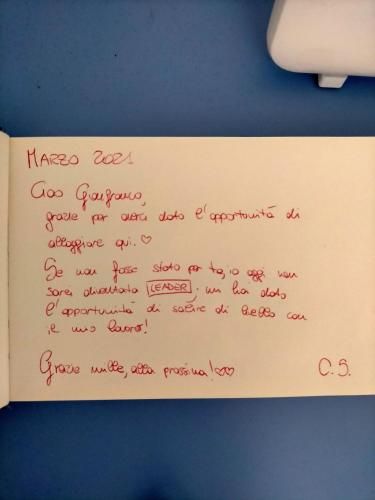 MARZO 2021
Ciao Gianfranco,
grazie per averci dato l'opportunità di
alloggiare qui. ♡
Se non fosse stato per te, io oggi non
sarei diventata LEADER. mi hai dato
l'opportunità di salire di livello con
il mio lavoro!
Grazie mille, alla prossima! ♡♡
C. S.